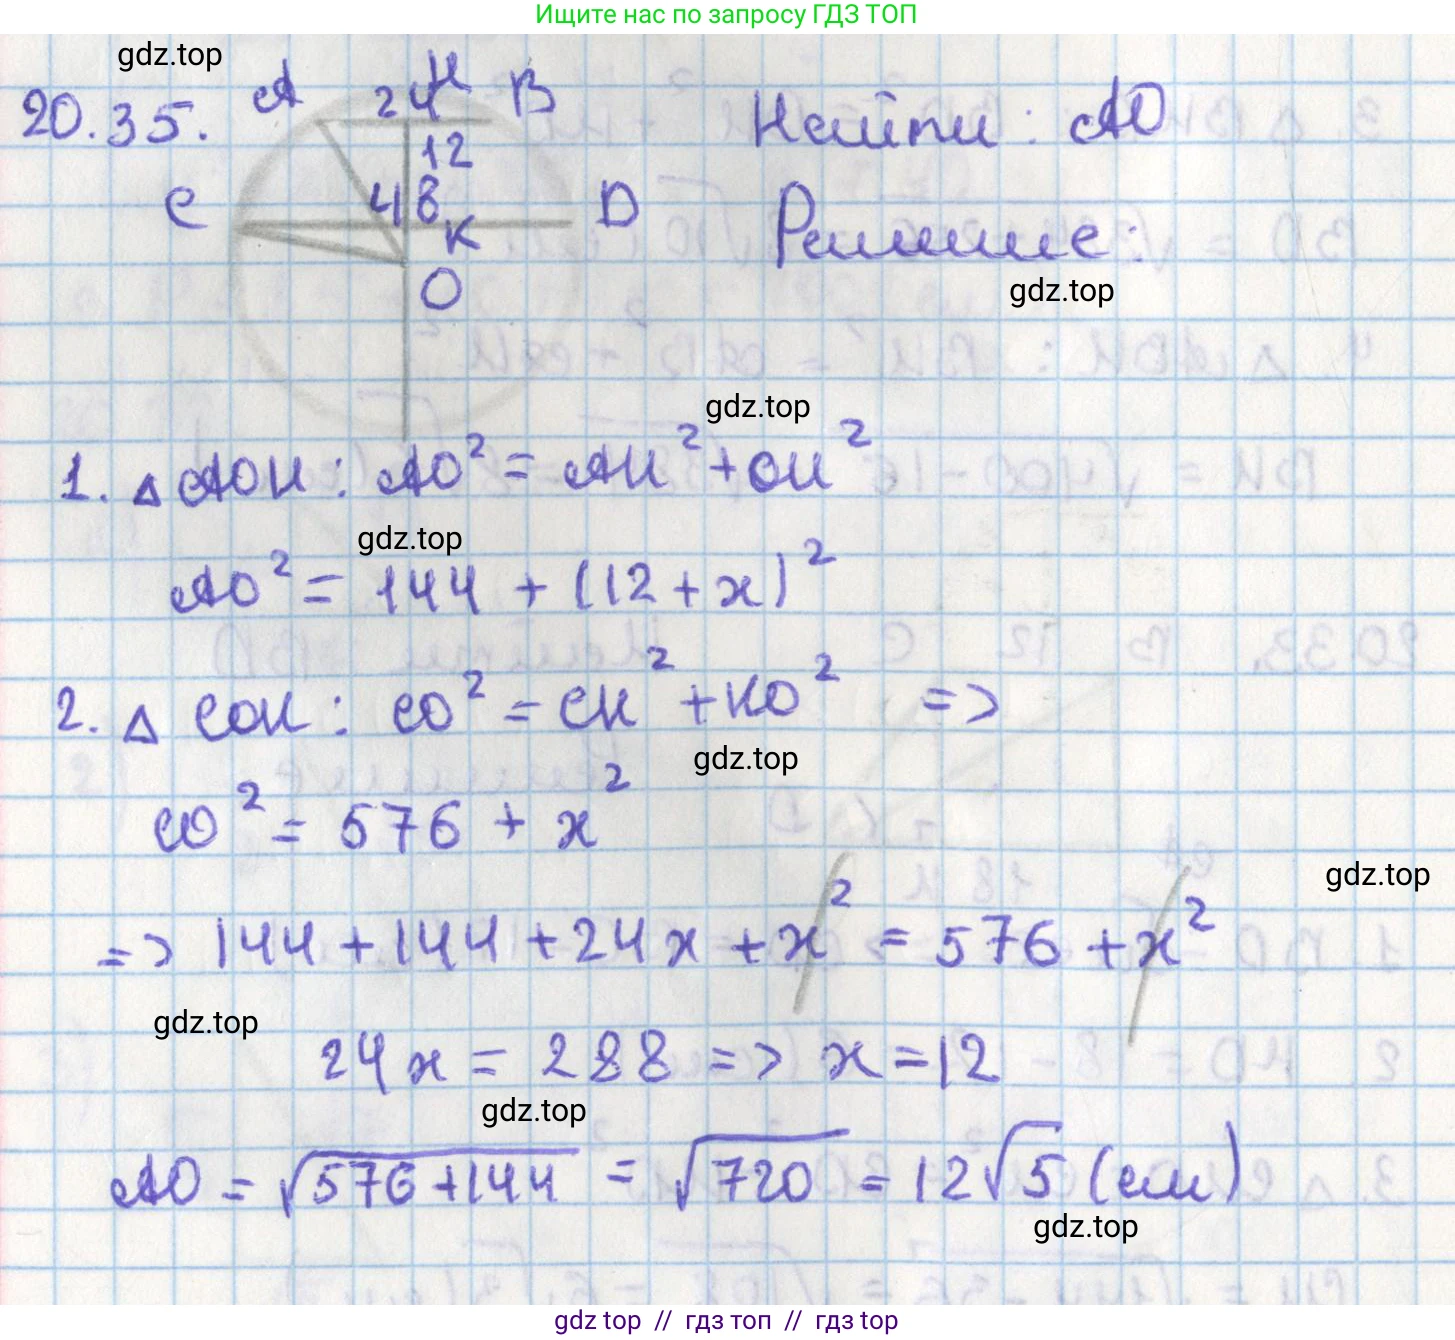 Ищите нас по запросу ГДЗ ТОП
gdz.top
20.35. A 24 H B Найти: AO
12
C 48 K D Решение:
O
gdz.top
gdz.top
1. △ AOH: AO² = AH² + OH²
gdz.top
AO² = 144 + (12 + x)²
2. △ COK: CO² = CK² + KO² =>
gdz.top
CO² = 576 + x²
gdz.top
=> 144 + 144 + 24x + x² = 576 + x²
gdz.top
24x = 288 => x = 12
gdz.top
AO = √576 + 144 = √720 = 12√5 (см)
gdz.top
gdz top // гдз топ // гдз top